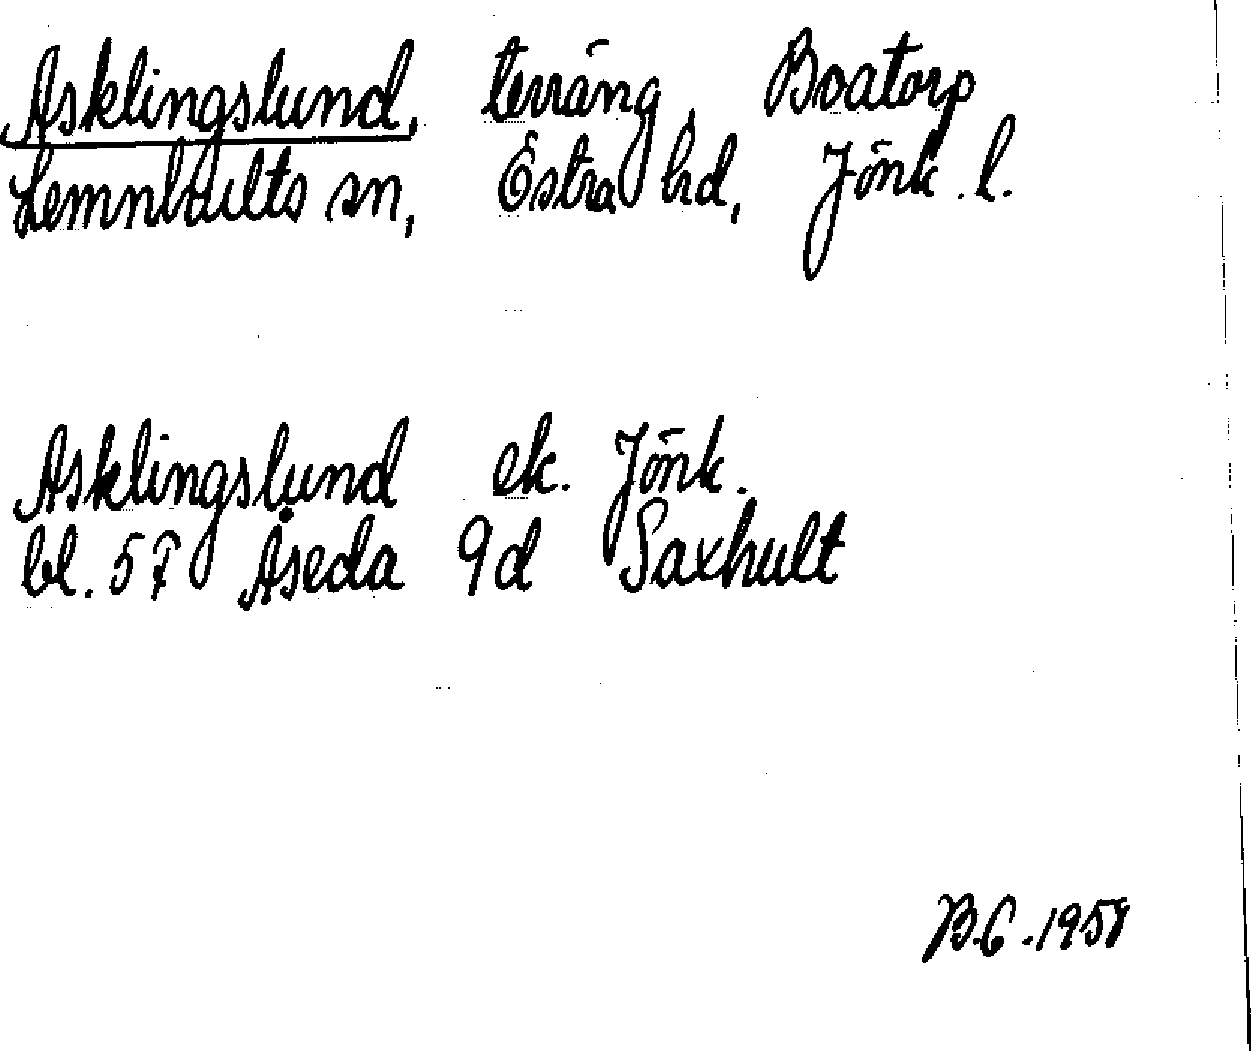 Asklingslund, terräng, Boatorp
Lemnhults sn, Östra hd, Jönk. l.
Asklingslund ek. Jönk.
bl. 5F Åseda 9d Saxhult